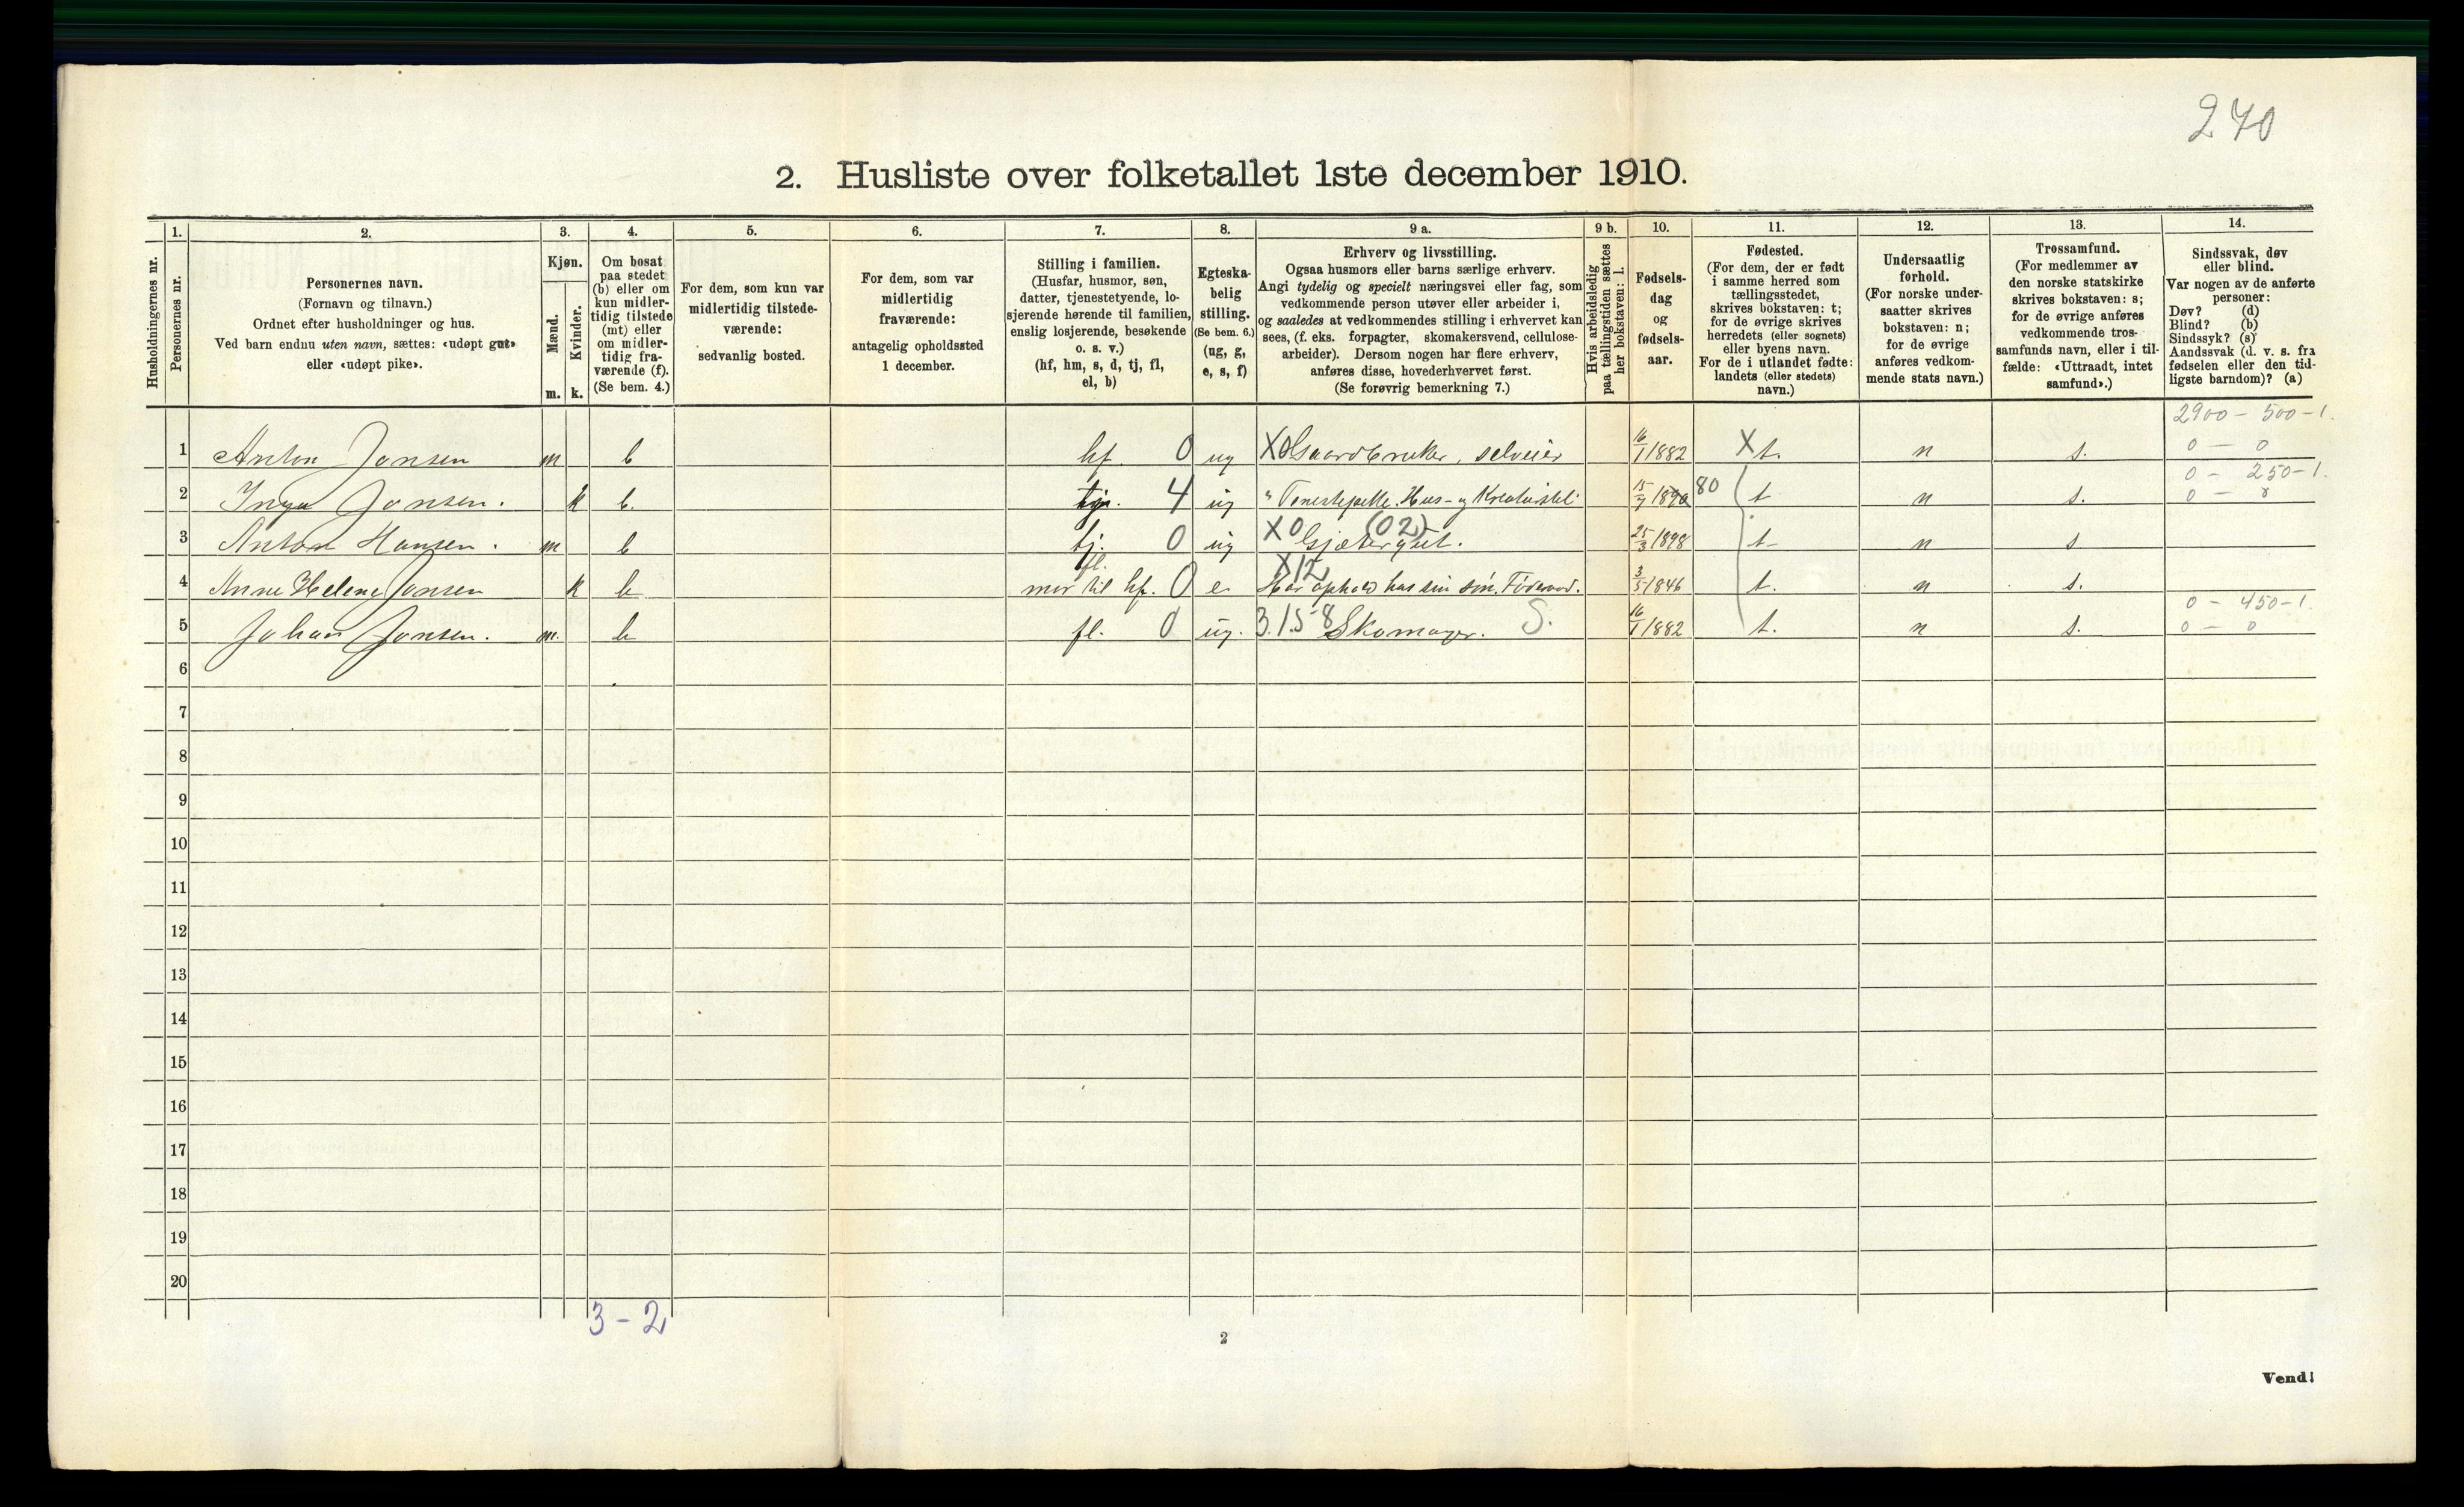 270
2. Husliste over folketallet 1ste december 1910.
Husholdningernes nr.
1.
Personernes nr.
2.
Personernes navn.
(Fornavn og tilnavn.)
Ordnet efter husholdninger og hus.
Ved barn endnu uten navn, sættes: «udøpt gut»
eller «udøpt pike».
3.
Kjøn.
Mænd.
Kvinder.
m. k.
4.
Om bosat
paa stedet
(b) eller om
kun midler-
tidig tilstede
(mt) eller
om midler-
tidig fra-
værende (f).
(Se bem. 4.)
5.
For dem, som kun var
midlertidig tilstede-
værende:
sedvanlig bosted.
6.
For dem, som var
midlertidig
fraværende:
antagelig opholdssted
1 december.
7.
Stilling i familien.
(Husfar, husmor, søn,
datter, tjenestetyende, lo-
sjerende hørende til familien,
enslig losjerende, besøkende
o. s. v.)
(hf, hm, s, d, tj, fl,
el, b)
8.
Egteska-
belig
stilling.
(Se bem. 6.)
(ug, g,
e, s, f)
9 a.
Erhverv og livsstilling.
Ogsaa husmors eller barns særlige erhverv.
Angi tydelig og specielt næringsvei eller fag, som
vedkommende person utøver eller arbeider i,
og saaledes at vedkommendes stilling i erhvervet kan
sees, (f. eks. forpagter, skomakersvend, cellulose-
arbeider). Dersom nogen har flere erhverv,
anføres disse, hovederhvervet først.
(Se forøvrig bemerkning 7.)
9 b.
Hvis arbeidsledig
paa tællingstiden sættes
her bokstaven: l.
10.
Fødsels-
dag
og
fødsels-
aar.
11.
Fødested.
(For dem, der er født
i samme herred som
tællingsstedet,
skrives bokstaven: t;
for de øvrige skrives
herredets (eller sognets)
eller byens navn.
For de i utlandet fødte:
landets (eller stedets)
navn.)
12.
Undersaatlig
forhold.
(For norske under-
saatter skrives
bokstaven: n;
for de øvrige
anføres vedkom-
mende stats navn.)
13.
Trossamfund.
(For medlemmer av
den norske statskirke
skrives bokstaven: s;
for de øvrige anføres
vedkommende tros-
samfunds navn, eller i til-
fælde: «Uttraadt, intet
samfund».)
14.
Sindssvak, døv
eller blind.
Var nogen av de anførte
personer:
Døv? (d)
Blind? (b)
Sindssyk? (s)
Aandssvak (d. v. s. fra
fødselen eller den tid-
ligste barndom)? (a)
2900 - 500-1.
1 Anton Jonsen m b hf. 0 ug X0 Gaardbruker, selveier 16/1 1882 X t. n s. 0 - 0
0 - 250-1.
2 Inga Jonsen. k b. tj. 4 ug " Tenestepike. Hus- og Kreaturstel 15/7 1890 80 t n s. 0 - 0
3 Anton Hansen. m b tj. 0 ug X0 (02) Gjætergut. 25/3 1898 t n s
fl. X12
4 Anne Helene Jonsen k b mor til hf. 0 e Har ophold hos sin søn. Føderaad. 3/5 1846 t. n s.
0 - 450-1.
5 Johan Jonsen. m. b fl. 0 ug. 3.15-8 Skomager. S. 16/1 1882 t. n s. 0 - 0
6
7
8
9
10
11
12
13
14
15
16
17
18
19
20
3-2
2
Vend!